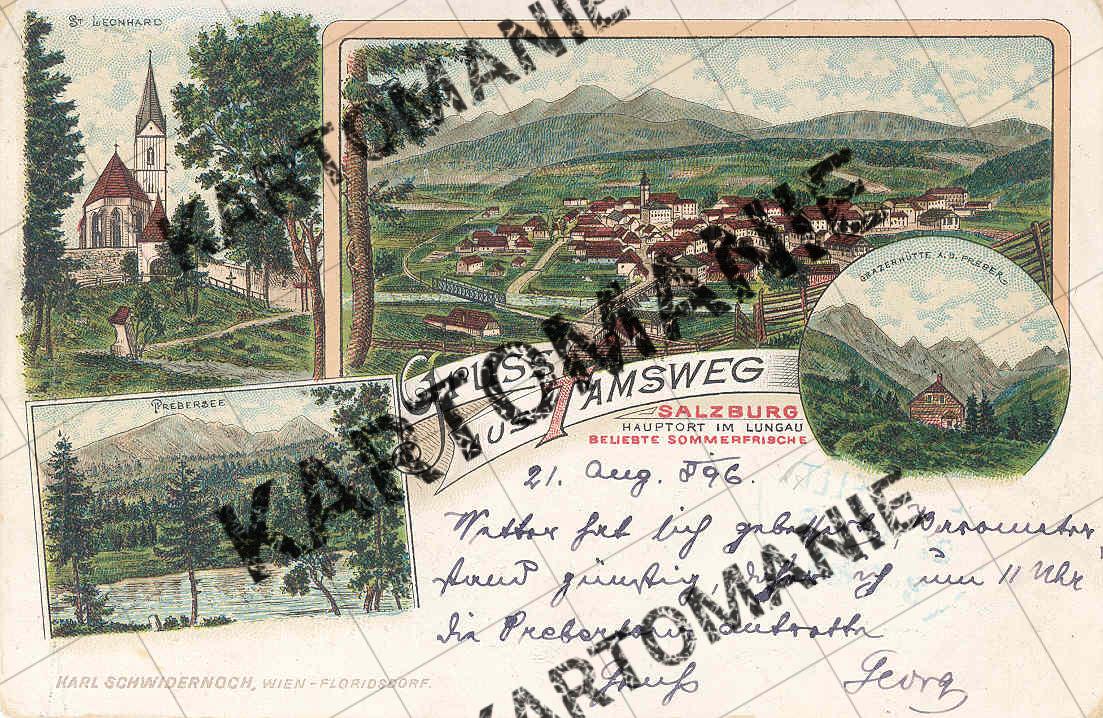 ST LEONHARD
GRAZERHÜTTE A. D. PREBER
GRUSS
AUS TAMSWEG
SALZBURG
HAUPTORT IM LUNGAU
BELIEBTE SOMMERFRISCHE
PREBERSEE
21. Aug. 896.
Wetter hat sich gebessert, Barometer
stand günstig, daher ich um 11 Uhr
die Prebertour antrette
Gruß Georg
KARL SCHWIDERNOCH, WIEN-FLORIDSDORF.
KARTOMANIE
KARTOMANIE
© KARTOMANIE
KARTOMANIE